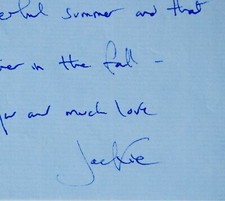 summer and that
in the fall –
and much love
Jackie